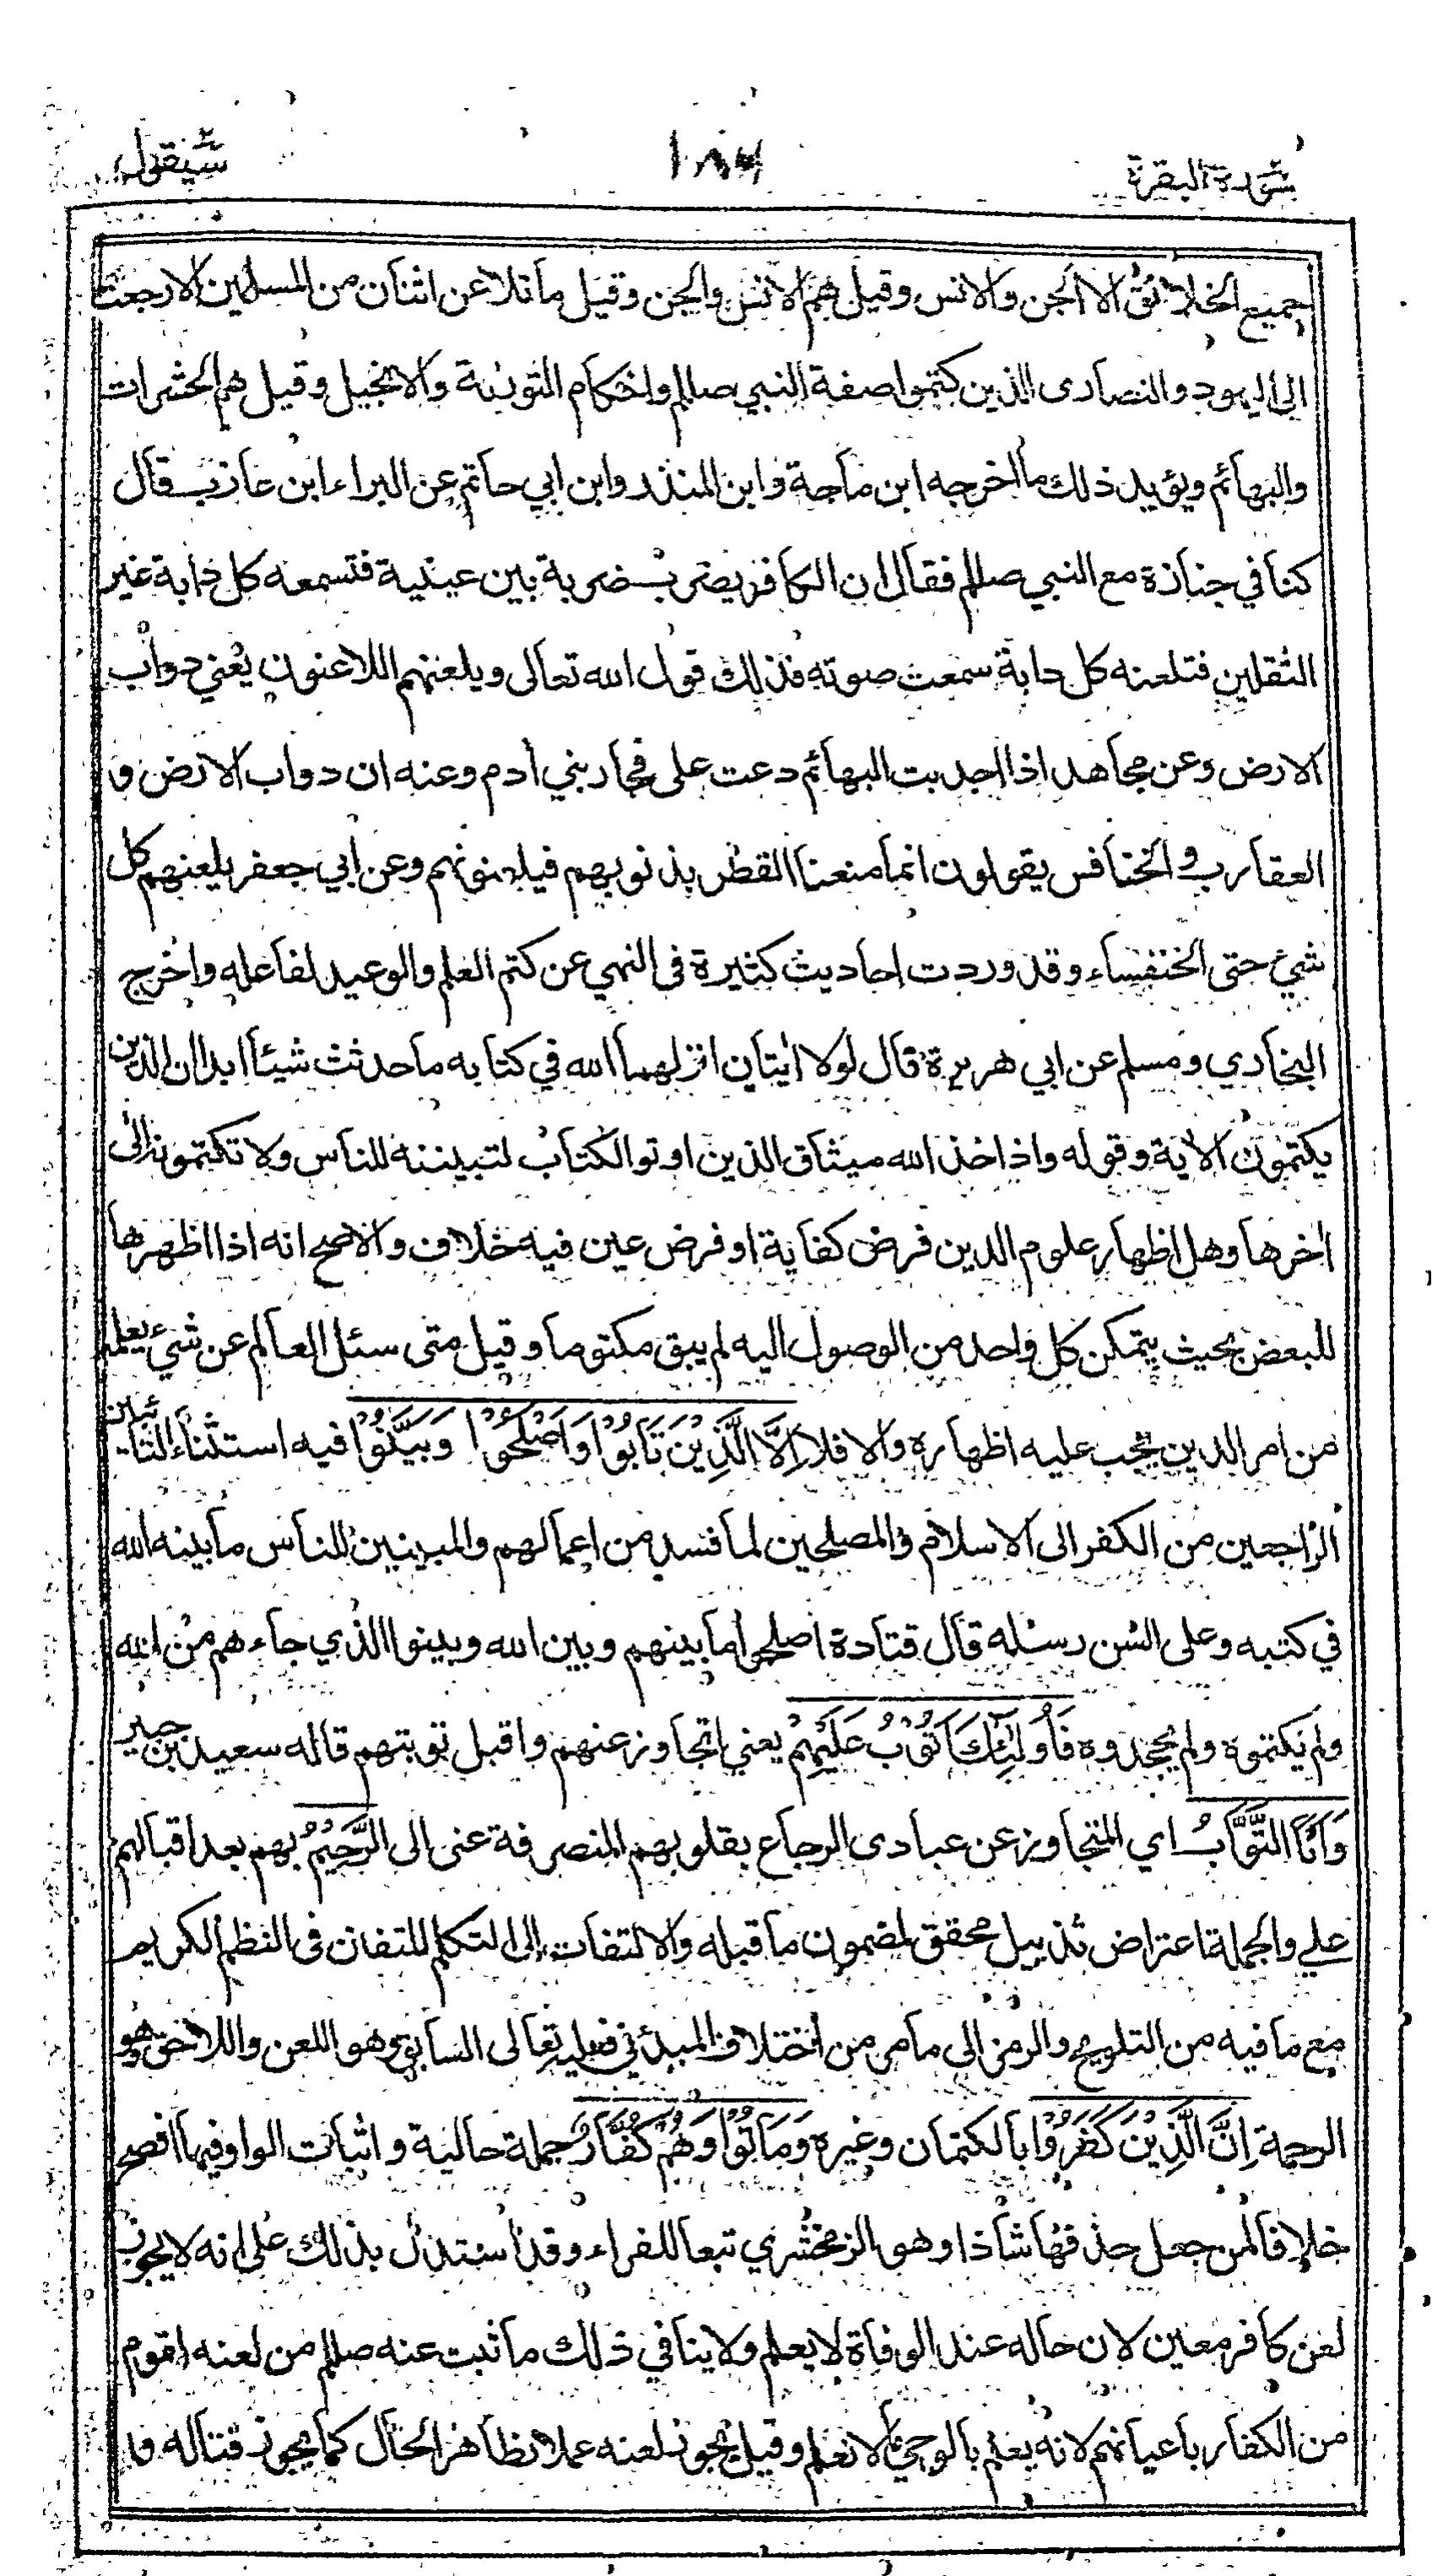 سورة البقرة
١٨٦
سيقول
جميع الخلائق الا الجن والانس وقيل هم الانس والجن وقيل ما تلاعن اثنان من المسلمين الا رجعت
الى اليهود والنصارى الذين كتموا صفة النبي صللم واحكام التورٰىة والانجيل وقيل هم الحشرات
والبهائم ويؤيد ذلك ما اخرجه ابن ماجة وابن المنذر وابن ابي حاتم عن البراء ابن عازب قال
كنا في جنازة مع النبي صللم فقال ان الكافر يضرب ضربة بين عينيه فتسمعه كل دابة غير
الثقلين فتلعنه كل دابة سمعت صوته فذلك قول الله تعالى ويلعنهم اللاعنون يعني دواب
الارض وعن مجاهد اذا اجدبت البهائم دعت على فجار بني أدم وعنه ان دواب الارض و
العقارب والخنافس يقولون انما منعنا القطر بذنوبهم فيلعنونهم وعن ابي جعفر يلعنهم كل
شيء حتى الخنفساء وقد وردت احاديث كثيرة في النهي عن كتم العلم والوعيد لفاعله واخرج
البخاري ومسلم عن ابي هريرة قال لولا ايتان انزلهما الله في كتابه ما حدثت شيئا ابدا ان الذين
يكتمون الأية وقوله واذ اخذ الله ميثاق الذين اوتوا الكتاب لتبيننه للناس ولا تكتمونه الى
اخرها وهل اظهار علوم الدين فرض كفاية او فرض عين فيه خلاف والاصح انه اذا اظهرها
للبعض بحيث يتمكن كل واحد من الوصول اليه لم يبق مكتوما وقيل متى سئل العالم عن شيء يعلمه
من امر الدين يجب عليه اظهاره والا فلا اِلَّا الَّذِيْنَ تَابُوْا وَاَصْلَحُوْا وَبَيَّنُوْا فيه استثناء التائبين
الراجعين من الكفر الى الاسلام والمصلحين لما فسد من اعمالهم والمبينين للناس ما بينه الله
في كتبه وعلى السن رسله قال قتادة اصلحوا ما بينهم وبين الله وبينوا الذي جاءهم من الله
ولم يكتموه ولم يجحدوه فَاُولٰٓئِكَ اَتُوْبُ عَلَيْهِمْ يعني اتجاوز عنهم واقبل توبتهم قاله سعيد بن جبير
وَاَنَا التَّوَّابُ اي المتجاوز عن عبادى الرجاع بقلوبهم المنصرفة عنى الى الرَّحِيْمُ بهم بعد اقبالهم
علي والجملة اعتراض تذييل محقق لمضمون ما قبله والالتفات الى التكلم للتفان في النظم الكريم
مع ما فيه من التلويح والرمز الى ما مر من اختلاف المبدئ في فعليه تعالى السابق وهو اللعن واللاحق وهو
الرحمة اِنَّ الَّذِيْنَ كَفَرُوْا بالكتمان وغيره وَمَاتُوْا وَهُمْ كُفَّارٌ جملة حالية واثبات الواو فيها افصح
خلافا لمن جعل حذفها شاذا وهو الزمخشري تبعا للفراء وقد استدل بذلك على انه لا يجوز
لعن كافر معين لان حاله عند الوفاة لا يعلم ولا ينافي ذلك ما ثبت عنه صللم من لعنه لقوم
من الكفار باعيانهم لانه يعلم بالوحي ما لا نعلم وقيل يجوز لعنه عملا بظاهر الحال كما يجوز قتاله